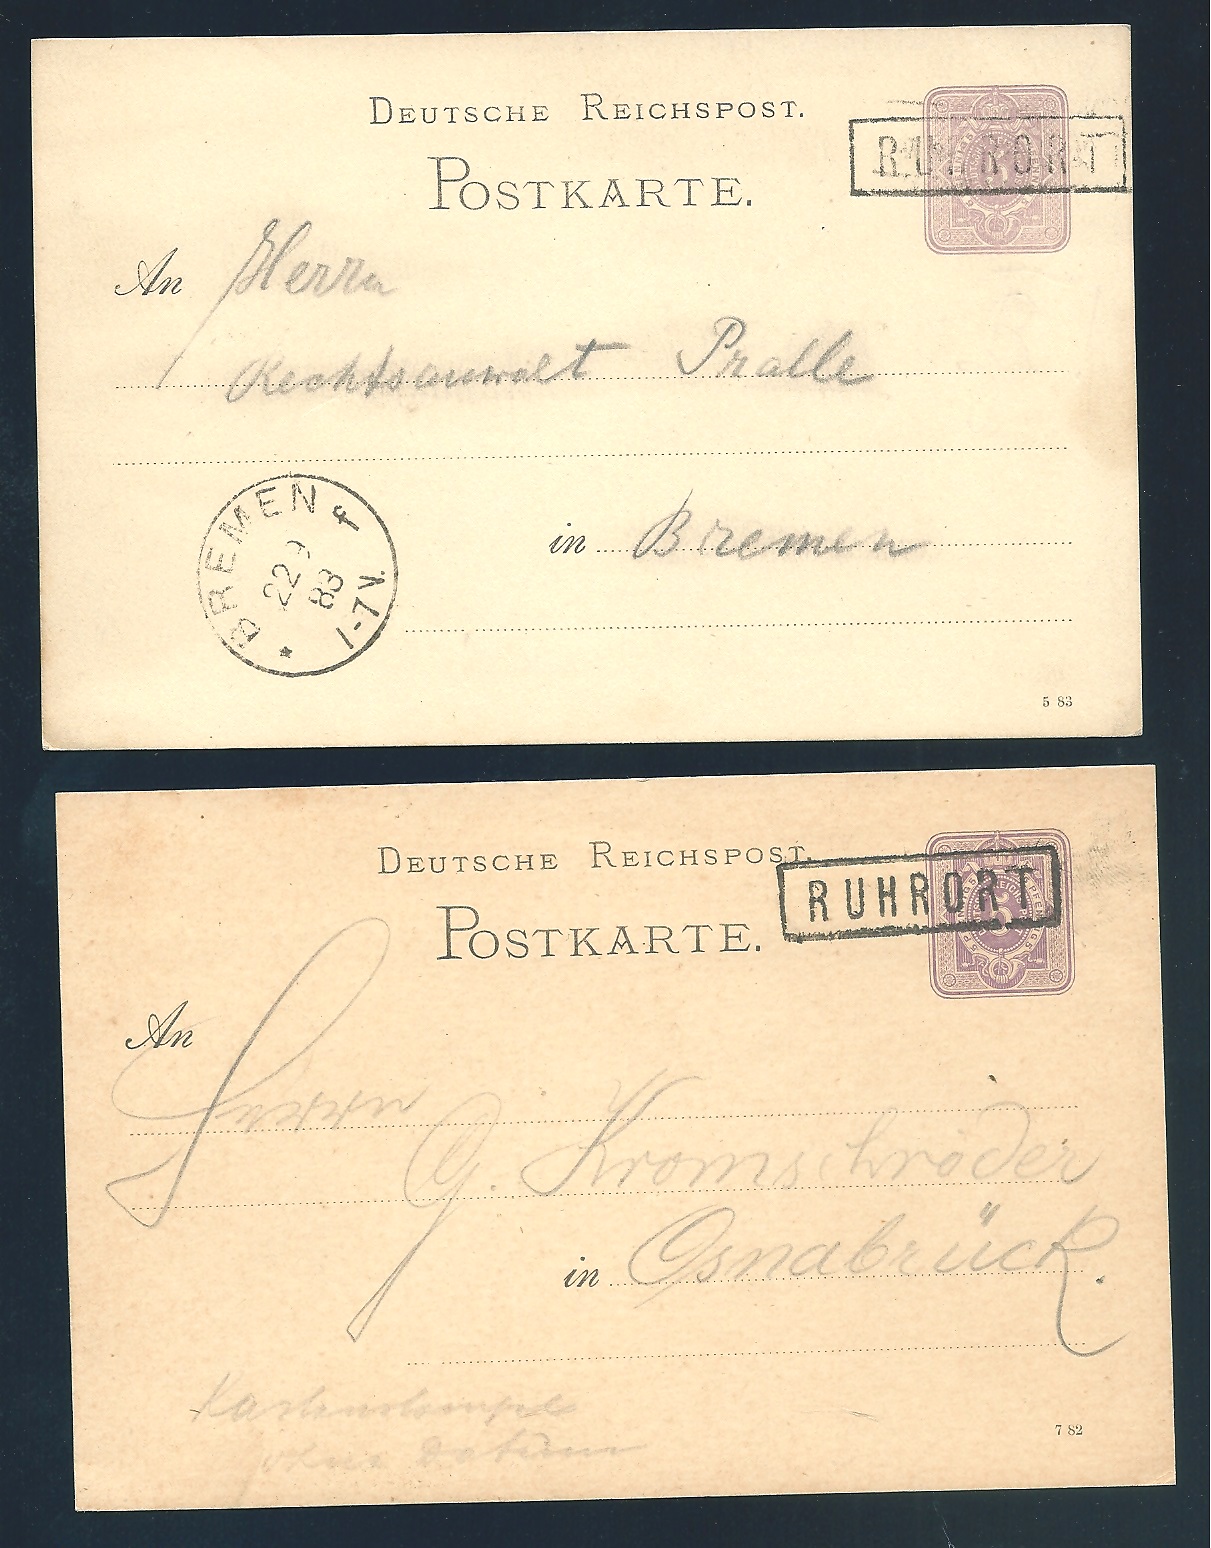 DEUTSCHE REICHSPOST.
POSTKARTE.
RUHRORT
An Herrn
Rechtsanwalt Pralle
in Bremen
BREMEN f
22 9
83
1-7 V.
*
5 83
DEUTSCHE REICHSPOST.
POSTKARTE.
RUHRORT
5
An
Herrn
G. Kromschröder
in Osnabrück.
Kastenstempel
ohne Datum
7 82